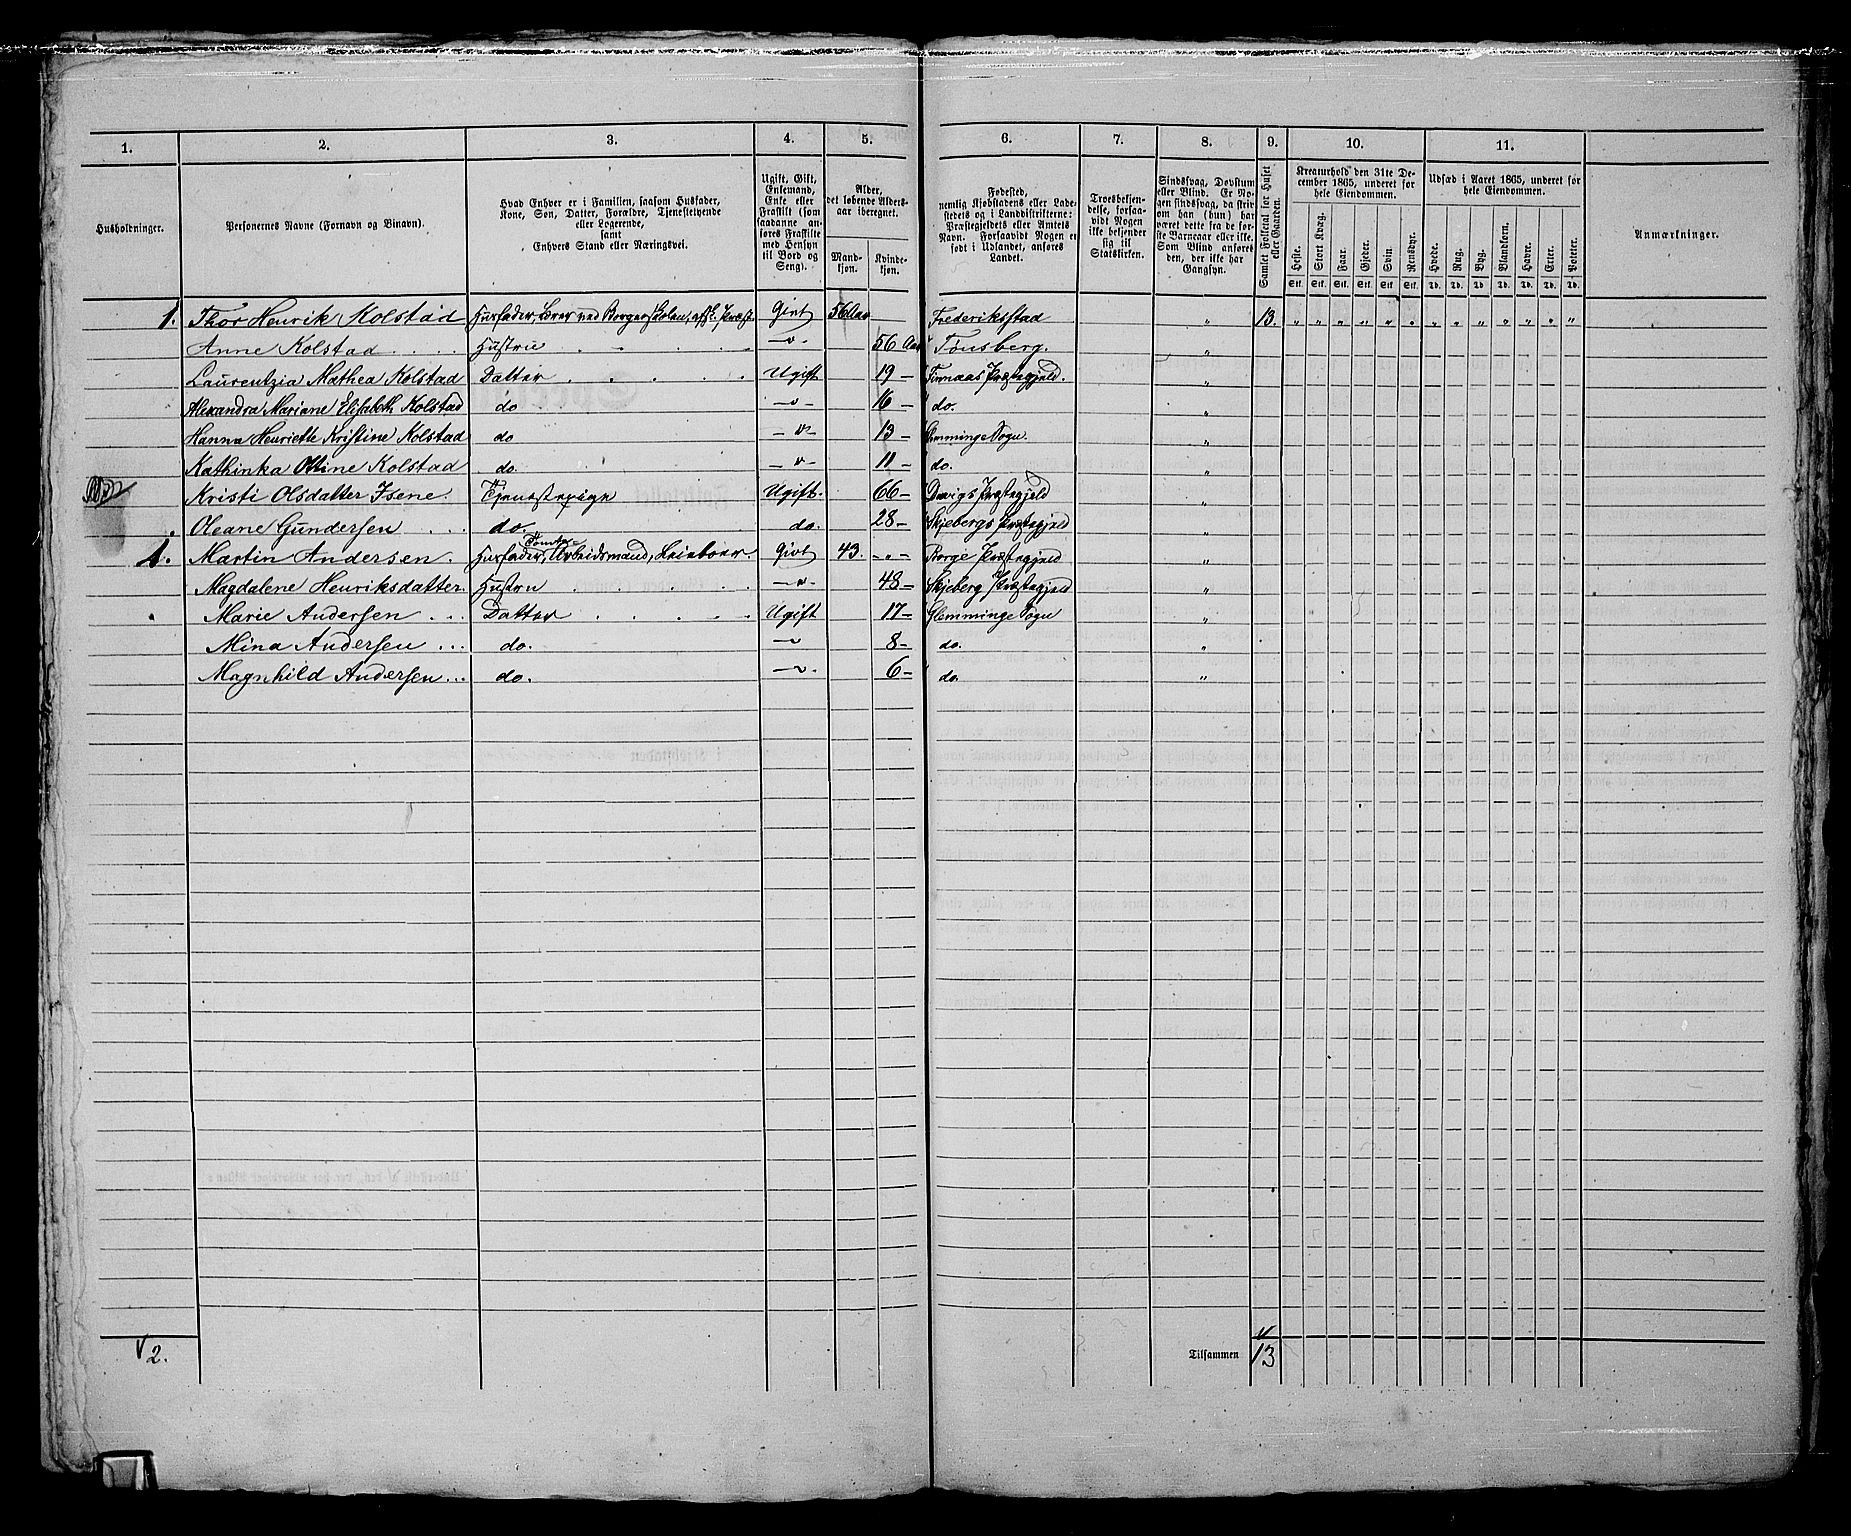 1. 2. 3. 4. 5. 6. 7. 8. 9. 10. 11.
Husholdninger.
Personernes Navne (Fornavn og Binavn).
Hvad Enhver er i Familien, saasom Husfader,
Kone, Søn, Datter, Forældre, Tjenestetyende
eller Logerende,
samt
Enhvers Stand eller Næringsvei.
Ugift, Gift,
Enkemand,
Enke eller
Fraskilt (som
saadanne an-
føres Fraskilte
med Hensyn
til Bord og
Seng).
Alder,
det løbende Alders-
aar iberegnet.
Mand-
kjøn.
Kvinde-
kjøn.
Fødested,
nemlig Kjøbstadens eller Lade-
stedets og i Landdistrikterne:
Præstegjeldets eller Amtets
Navn. Forsaavidt Nogen er
født i Udlandet, anføres
Landet.
Troesbekjen-
delse, forsaa-
vidt Nogen
ikke bekjender
sig til
Statskirken.
Sindssvag, Døvstum
eller Blind. Er No-
gen sindssvag, da skriv
om han (hun) har
været dette fra de før-
ste Barneaar eller ikke.
Som Blind anføres
den, der ikke har
Gangsyn.
Samlet Folketal for Huset
eller Gaarden.
Kreaturhold den 31te De-
cember 1865, underet for
hele Eiendommen.
Heste. Stort Kvæg. Faar. Gjeder. Svin. Rensdyr.
Stk. Stk. Stk. Stk. Stk. Stk.
Udsæd i Aaret 1865, underet for
hele Eiendommen.
Hvede. Rug. Byg. Blandkorn. Havre. Erter. Poteter.
Td. Td. Td. Td. Td. Td. Td.
Anmærkninger.
1. Thor Henrik Kolstad Husfader, Lærer ved Borgerskolen, Givt 56 Aar Frederiksstad „ 13. „ „ „ „ „ „ „ „ „ „ „ „ „
Anne Kolstad Hustrue –„– 56 Aar Tønsberg. „
Laurentzia Mathea Kolstad Datter Ugift 19 – Finnaas Præstegjeld. „
Alexandra Mariane Elisabeth Kolstad do –„– 16 – do. „
Hanna Henriette Kristine Kolstad do –„– 13 – Glemminge Sogn. „
Kathinka Ottine Kolstad do. –„– 11 – do. „
Kristi Olsdatter Isene. Tjenestepige Ugift. 66 – Davigs Præstegjeld „
Oleane Gundersen do. do. 28 – Skjebergs Præstegjeld „
1. Martin Andersen. Husfader, Tomte-Arbeidsmand, Leieboer Givt 43. –„– Borge Præstegjeld „
Magdalene Henriksdatter. Hustru –„– 48 – Skjeberg Præstegjeld „
Marie Andersen Datter Ugift 17 – Glemminge Sogn „
Mina Andersen do. –„– 8 – do. „
Magnhild Andersen do. –„– 6 – do. „
2. Tilsammen 13